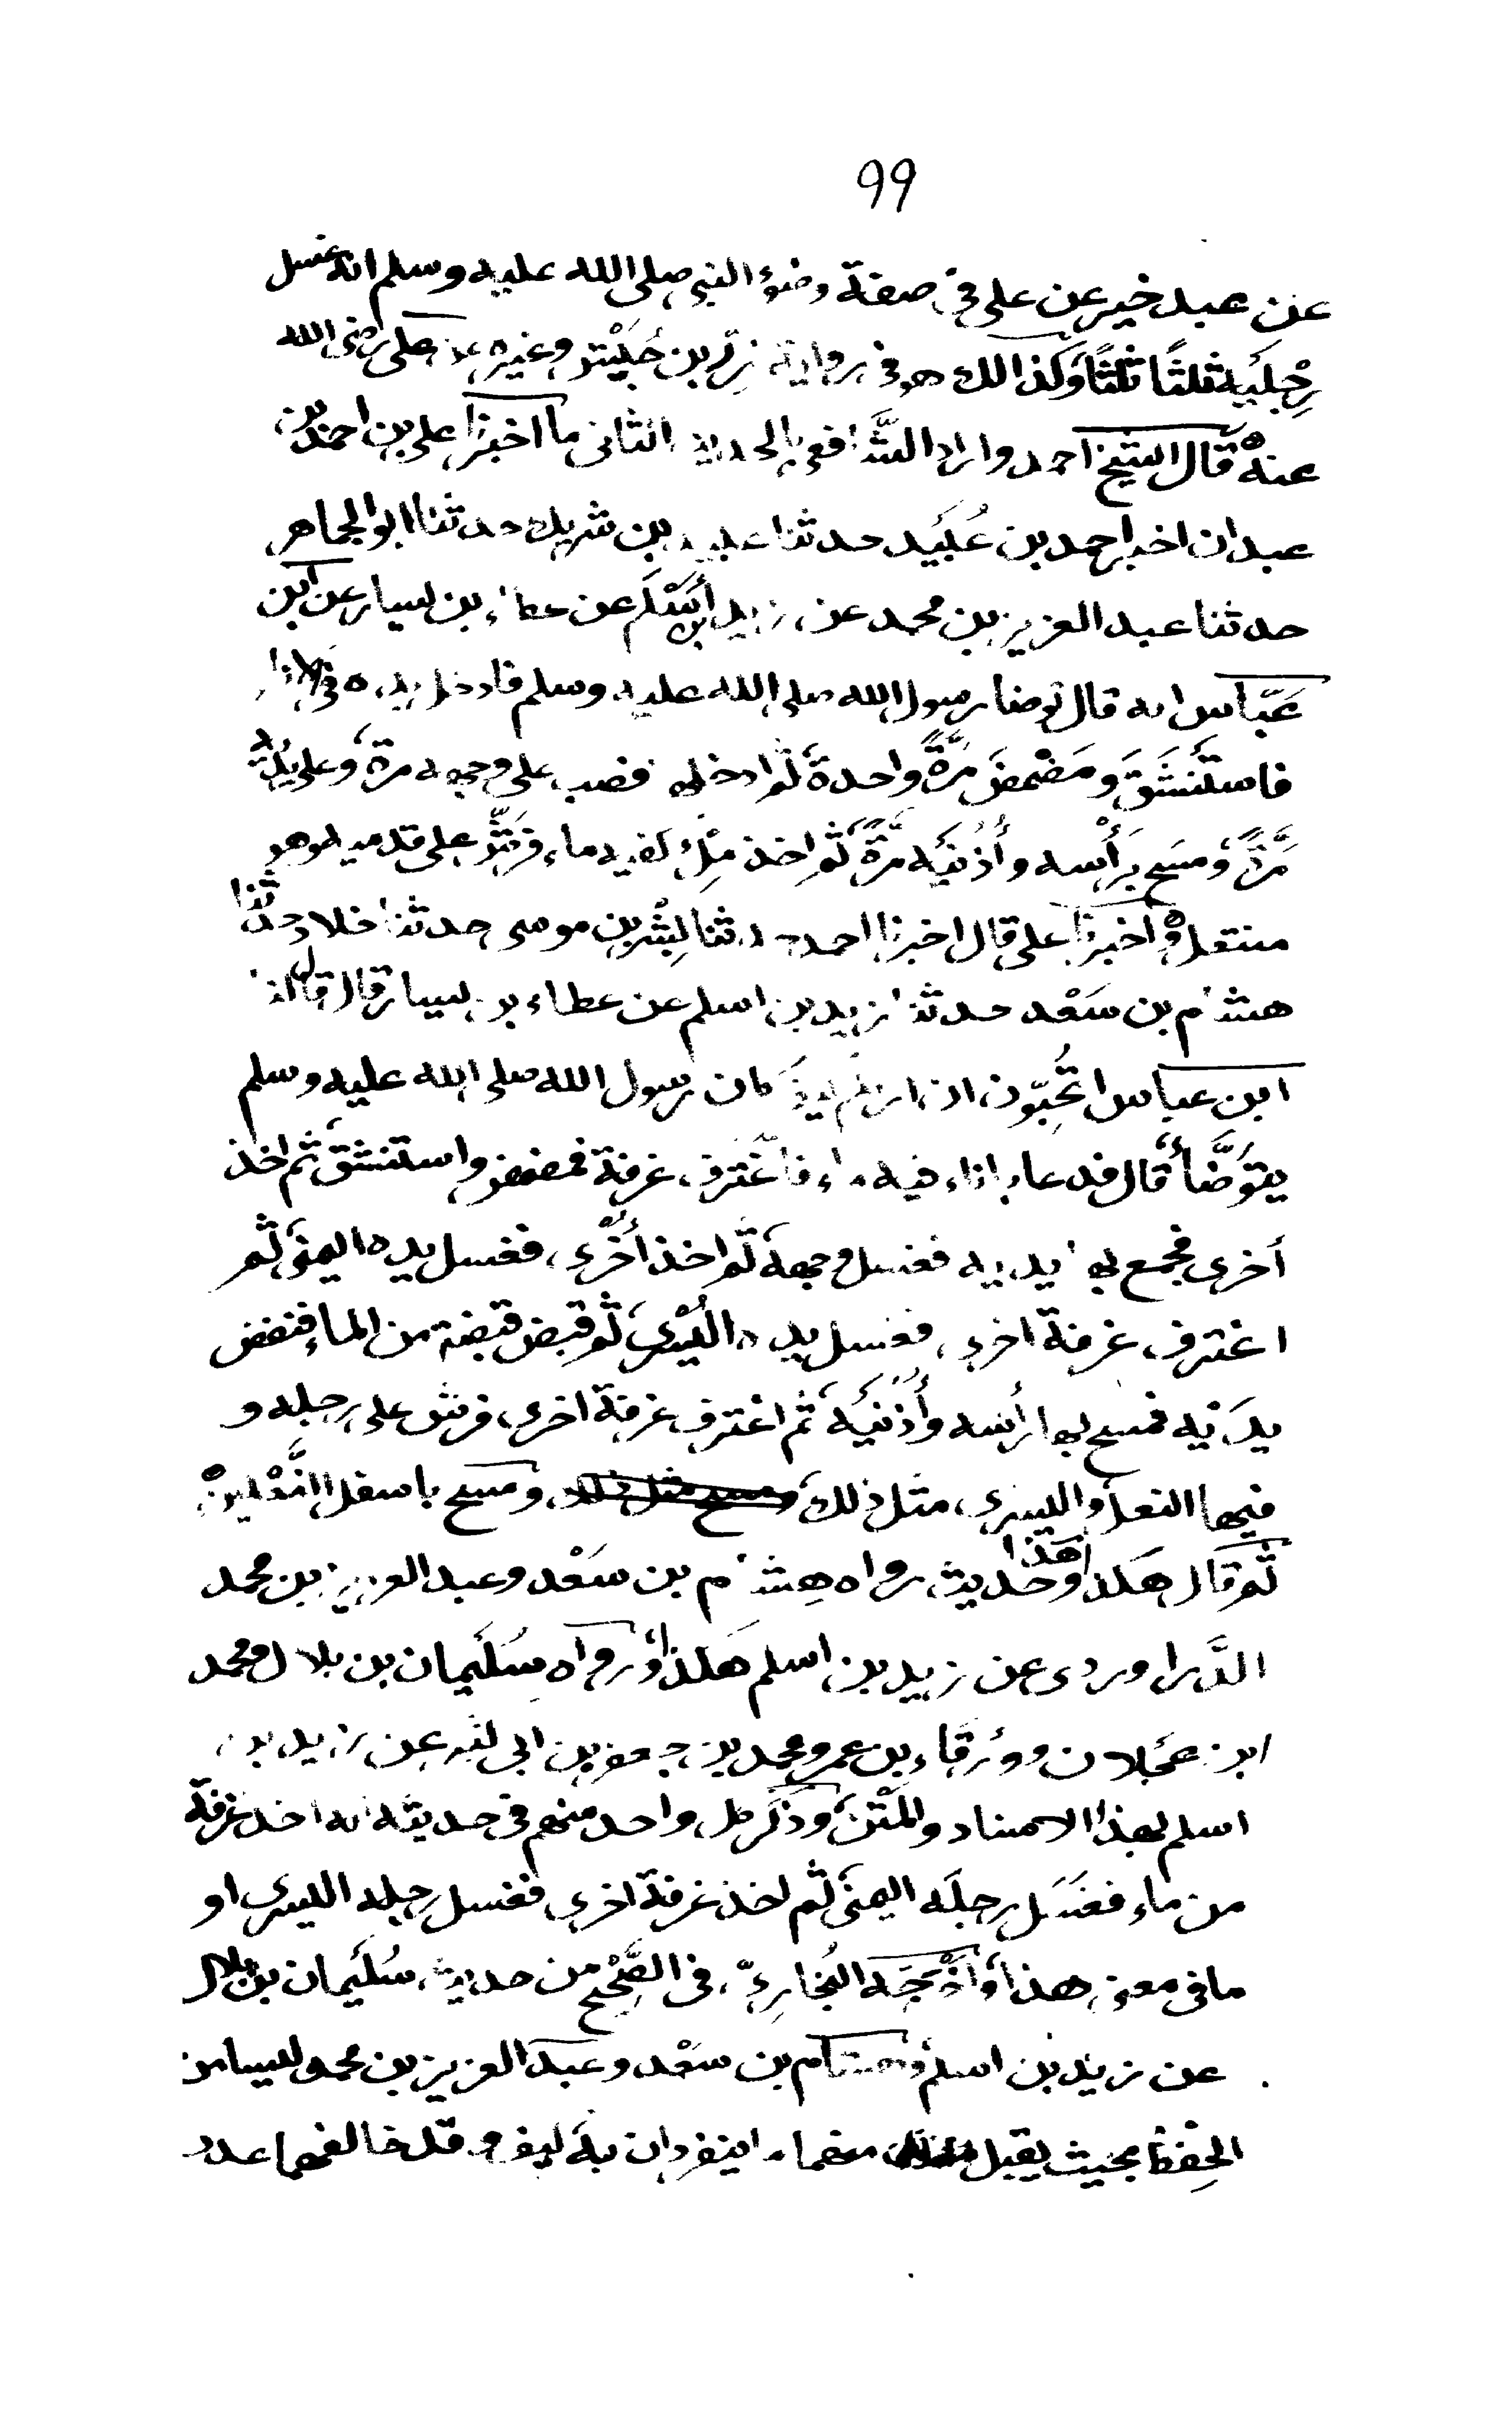 99
عن عبد خير عن علي في صفة وضوء النبي صلى الله عليه وسلم انه غسل
رِجْلَيه ثلثًا ثلثًا وكذالك هو في رواية زِرّ بن حُبَيْش وغيره عن علي رضي الله
عنهُ قال الشيخ احمد واراد الشَّافعي بالحديث الثاني ما اخبرنا علي بن احمد بن
عبدان اخبرا احمد بن عُبَيد حدثنا عبيد بن شريك حدثنا ابو الجماهر
حدثنا عبد العزيز بن محمد عن زيد بن أسْلَم عن عطاء بن يسار عن ابن
عَبّاس انه قال توضا رسول الله صلى الله عليه وسلم فادخل يده في الانا
فاستَنشَقَ ومَضْمضَ مَرّةً واحدة ثم ادخلها فصب على وجهه مرة وعلى يَدَيه
مَرَّةً ومسَح بِرَأْسه وأُذُنَيه مَرَّةً ثم اخذ مِلْءَ كفيه ماء فرَشّ على قدميه وهو
منتعلٌ واخبرنا علي قال اخبرنا احمد حدثنا بِشْر بن موسى حدثنا خلاد حدثنا
هشام بن سَعْد حدثنا زيد بن اسلم عن عطاء بن يسار قال قال لنا
ابن عباس اتُحِبّون ان اريكم كيف كان رسول الله صلى الله عليه وسلم
يتوَضَّأُ قال فدعا باناء فيه ماء فاغْترف غرفة فمضمض واستنشق ثم اخذ
أخرى فجمع بها يديه فغسل وجهه ثم اخذ أُخْرى فغسل يده اليمنى ثم
اغترف غرفة اخرى فغسل يده اليُسْرى ثم قبض قبضة من الماء فنفض
يدَيْه فمسح بها رأسه وأُذُنَيه ثم اغترف غرفة اخرى فرش على رجله و
فيها النعل واليسرى مثل ذلك ومسح مثل ذلك ومسح باسفل النَّعْلينْ
ثم قال هكذا وهذا حديث رواه هِشام بن سَعْد وعبد العزيز بن محمد
الدَّراوردي عن زيد بن اسلم هَكذا ورواه سُلَيمان بن بلال ومحمد
ابن عَجْلان ووَرْقاء بن عمر ومحمد بن جعفر بن ابي كثير عن زيد بن
اسلم بهذا الاسناد والمَتْن وذكر كل واحد منهم في حديثه انه اخذ غرفة
من ماء فغسَل رجلَه اليمنى ثم اخذ غرفة اخرى فغسل رجله اليسرى او
ما في معنى هذا وأخْرَجَه البُخاريّ في الصَّحِيْح من حديث سُلَيمان بن بلال
عن زيد بن اسلم وهشام بن سَعْد وعبد العزيز بن محمد ليسا من
الحِفظ بحيث يقبل منهما ما ينفردان به كيف وقد خالفهما عدد